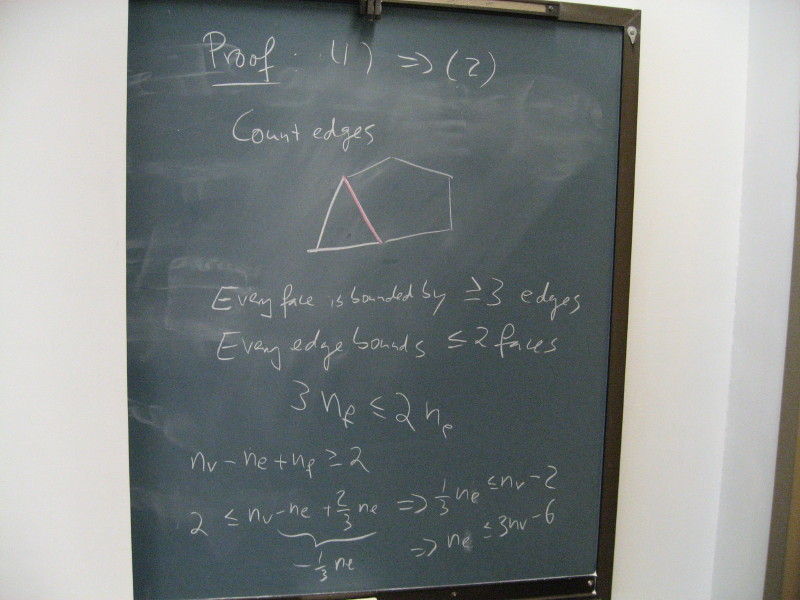 Proof : (1) ⇒ (2)
Count edges
Every face is bounded by ≥ 3 edges
Every edge bounds ≤ 2 faces
3 n_f ≤ 2 n_e
n_v - n_e + n_f ≥ 2
2 ≤ n_v - n_e + 2/3 n_e ⇒ 1/3 n_e ≤ n_v - 2
- 1/3 n_e ⇒ n_e ≤ 3n_v - 6